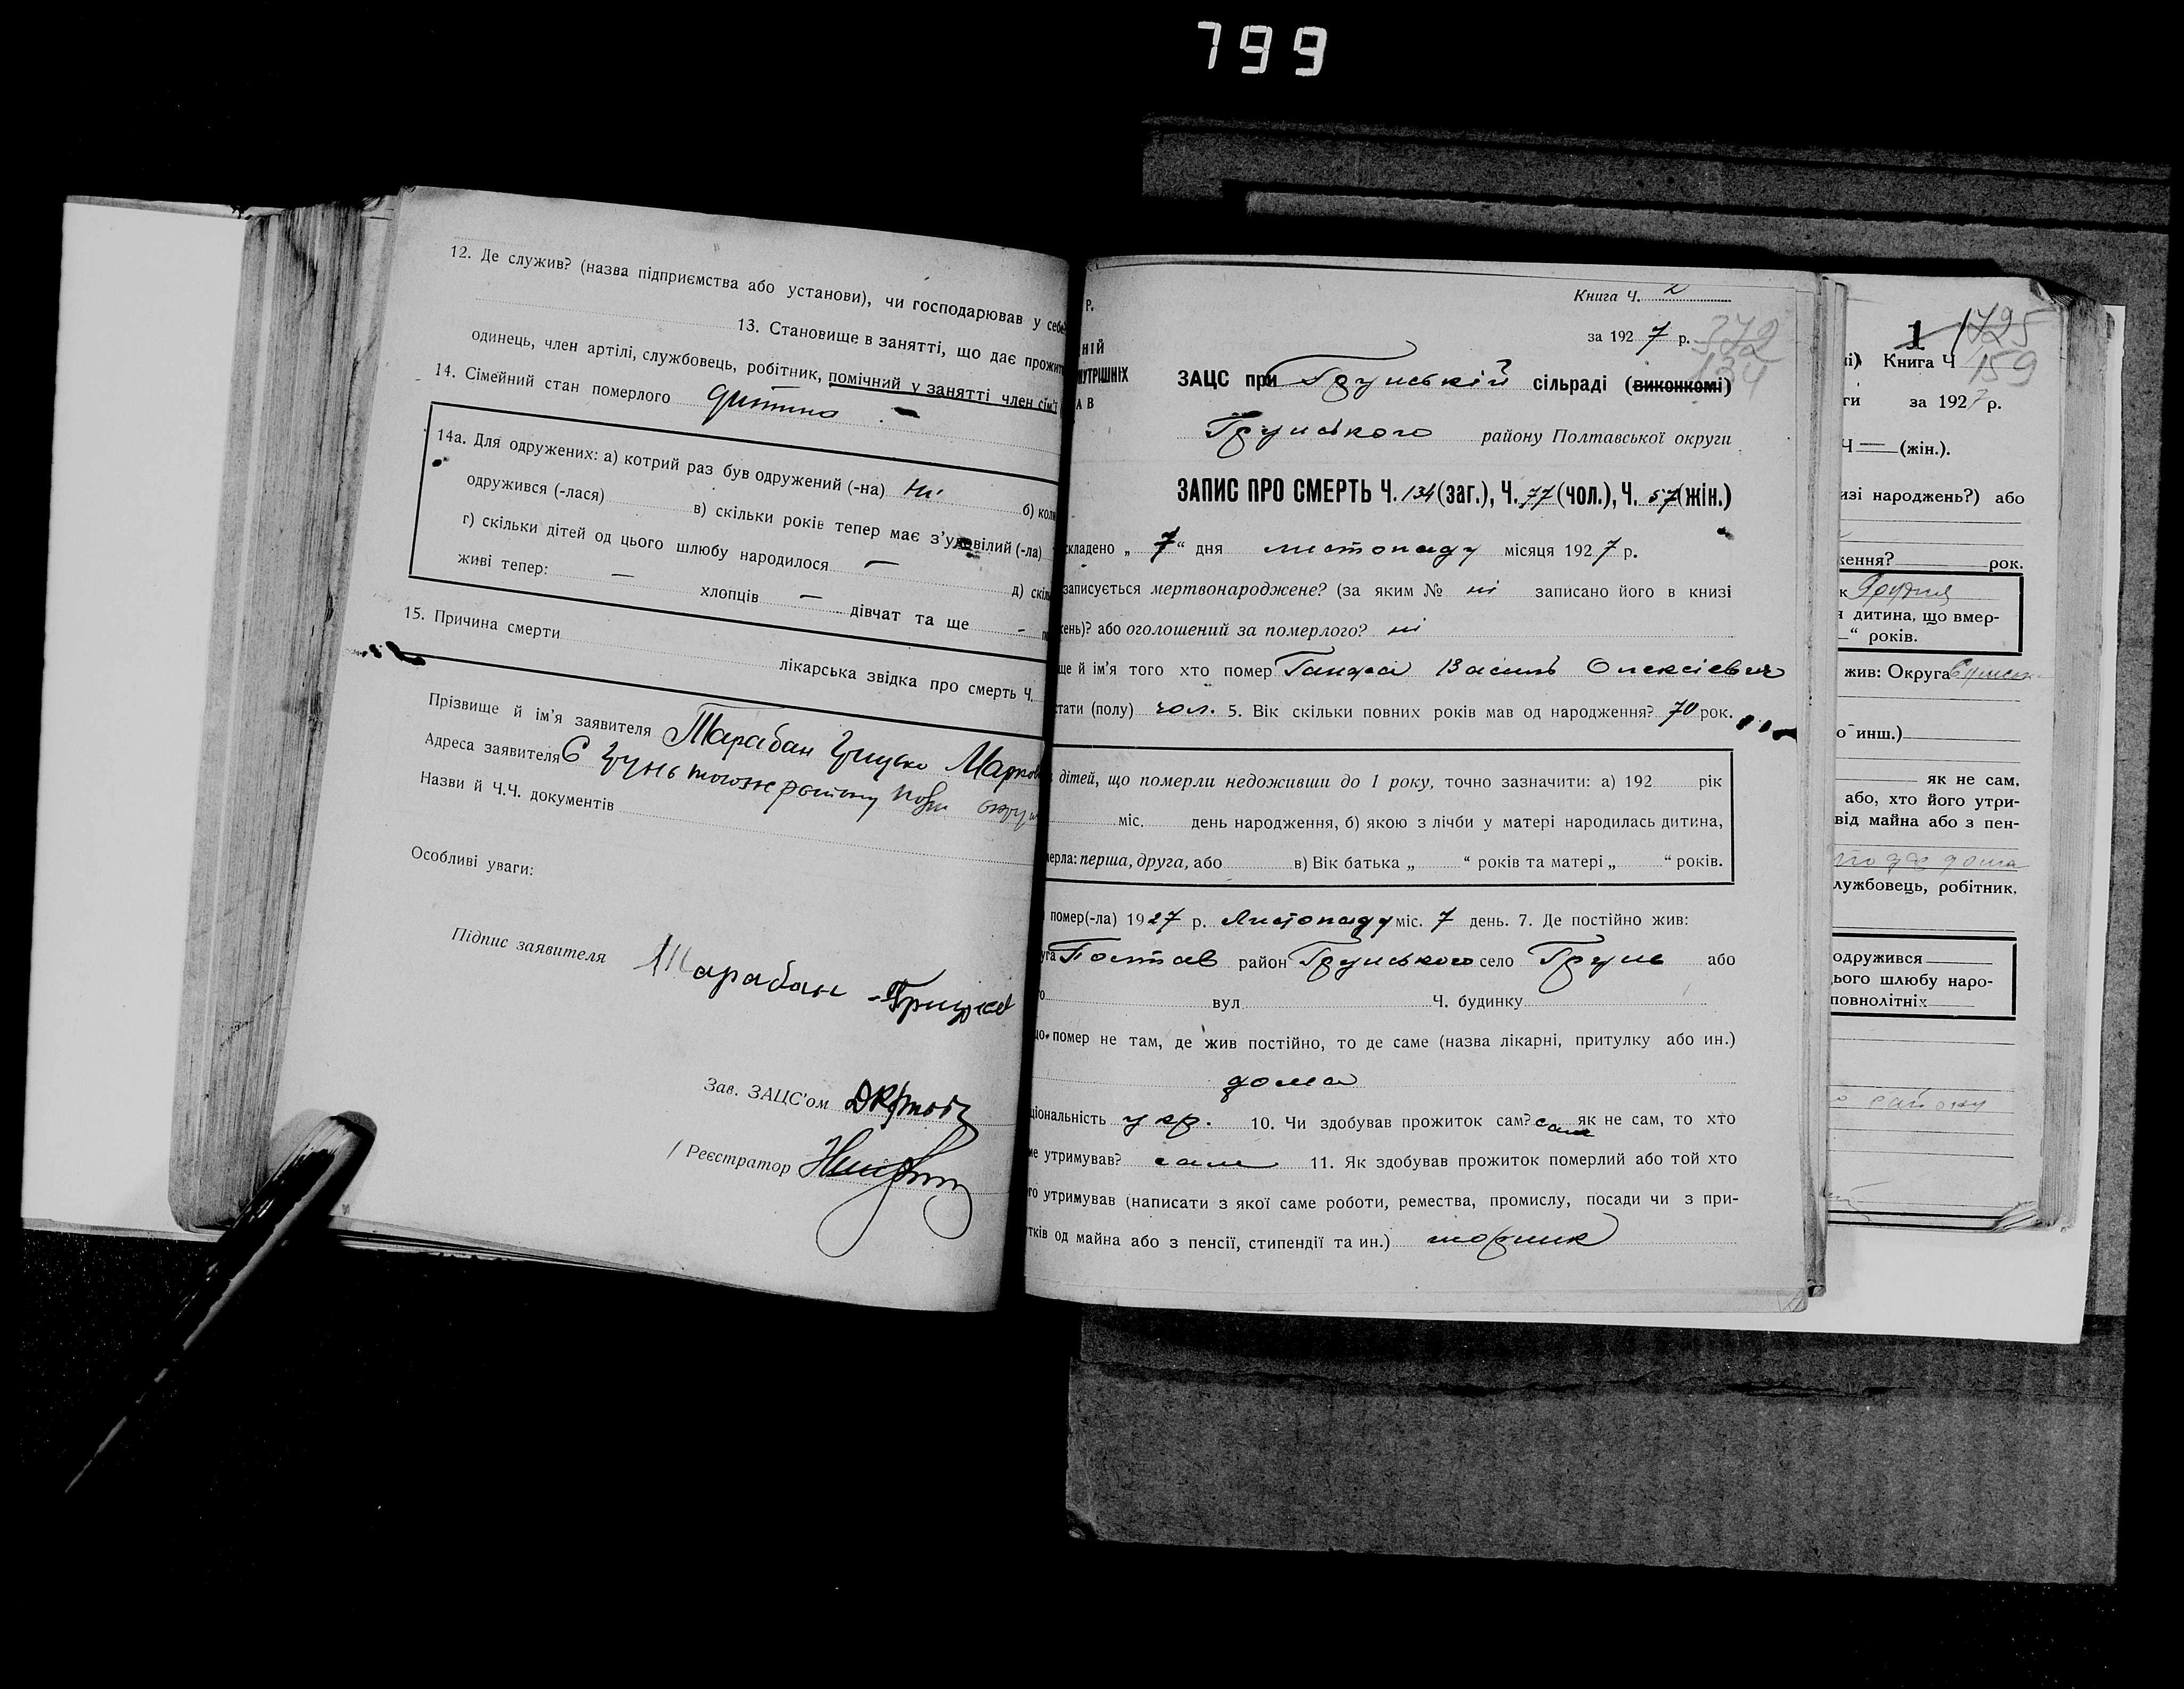 799
12. Де служив? (назва підприємства або установи), чи господарював у себе
13. Становище в занятті, що дає прожит
одинець, член артілі, службовець, робітник, помічний у занятті член сім'ї
14. Сімейний стан померлого дитина
14а. Для одружених: а) котрий раз був одружений (-на) ні б) коли
одружився (-лася) в) скільки років тепер має з'удовілий (-ла)
г) скільки дітей од цього шлюбу народилося — д) скіль
живі тепер: — хлопців — дівчат та ще -
15. Причина смерти
лікарська звідка про смерть Ч.
Прізвище й ім'я заявителя Тарабан Грицько Марков
Адреса заявителя С Грунь того ж району
Назви й Ч.Ч. документів
Особливі уваги:
Підпис заявителя Тарабан Грицко
Зав. ЗАЦС'ом
Реєстратор
Р.
НІЙ
НУТРІШНІХ
АВ
Книга Ч. 2
за 1927 р.
372
134
ЗАЦС при Грунській сільраді (виконкомі)
Грунського району Полтавської округи
ЗАПИС ПРО СМЕРТЬ Ч. 134 (заг.), Ч. 77 (чол.), Ч. 57 (жін.)
кладено „ 7 “ дня листопаду місяця 1927 р.
записується мертвонароджене? (за яким № ні записано його в книзі
ень)? або оголошений за померлого? ні
ще й ім'я того хто помер Василь Олексієвич
стати (полу) чол. 5. Вік скільки повних років мав од народження? 70 рок.
дітей, що померли недоживши до 1 року, точно зазначити: а) 192 рік
міс. день народження, б) якою з лічби у матері народилась дитина,
мерла: перша, друга, або в) Вік батька „ “ років та матері „ “ років.
помер(-ла) 1927 р. Листопаду міс. 7 день. 7. Де постійно жив:
уга Полтав район Грунського село Грунь або
вул Ч. будинку
що помер не там, де жив постійно, то де саме (назва лікарні, притулку або ин.)
дома
ціональність укр. 10. Чи здобував прожиток сам? сам як не сам, то хто
не утримував? сам 11. Як здобував прожиток померлий або той хто
го утримував (написати з якої саме роботи, ремества, промислу, посади чи з при-
тків од майна або з пенсії, стипендії та ин.)
1 1725
і) Книга Ч 159
ти за 1927 р.
Ч — (жін.).
изі народжень?) або
ження? рок.
к
я дитина, що вмер-
“ років.
жив: Округа
о инш.)
як не сам,
або, хто його утри-
від майна або з пен-
дома
лужбовець, робітник,
одружився
ього шлюбу наро-
повнолітніх
району